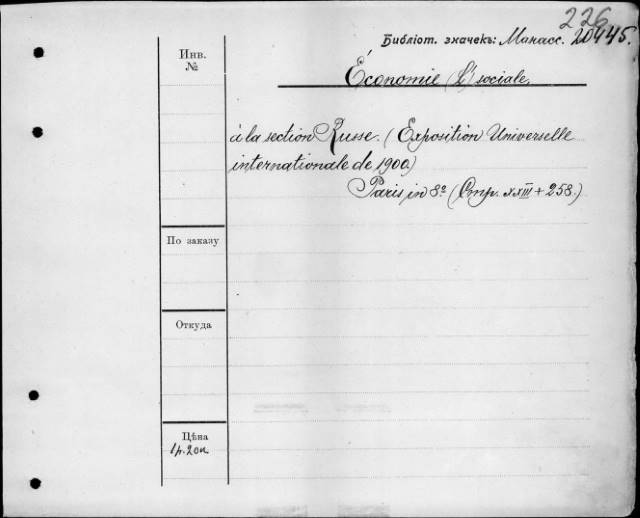 226
Библіот. значекъ: Манасс. 20445.
Инв.
№
Économie (L') sociale.
à la section Russe. (Exposition Universelle
internationale de 1900)
Paris, in 8º (Стр. XXIII + 258.)
По заказу
Откуда
Цѣна
1р. 20к